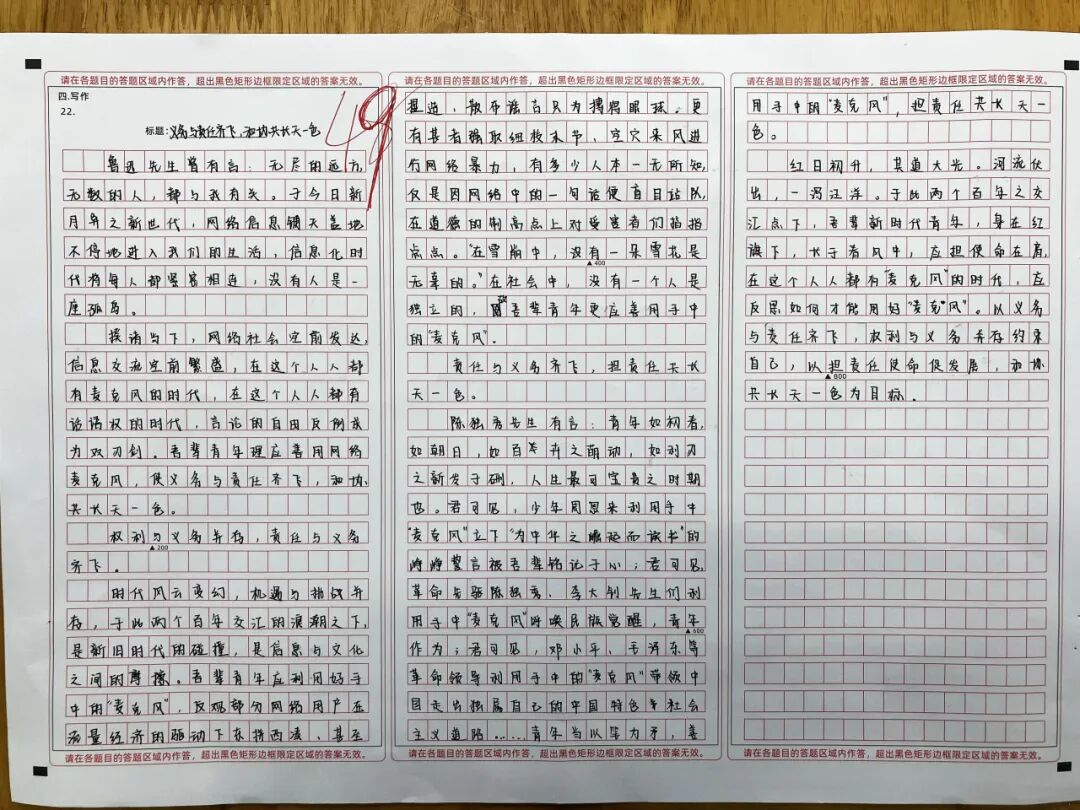 请在各题目的答题区域内作答，超出黑色矩形边框限定区域的答案无效。
四.写作
22.
49
标题：义务与责任齐飞，和协共长天一色
鲁迅先生曾有言：无尽的远方，
无数的人，都与我有关。于今日新
月异之新世代，网络信息铺天盖地
不停地进入我们的生活，信息化时
代将每人都紧紧相连，没有人是一
座孤岛。
揆诸当下，网络社会空前发达，
信息交流空前繁盛，在这个人人都
有麦克风的时代，在这个人人都有
话语权的时代，言论的自由反倒成
为双刃剑。吾辈青年理应善用网络
麦克风，使义务与责任齐飞，和协
共长天一色。
权利与义务并存，责任与义务
▲200
齐飞。
时代风云变幻，机遇与挑战并
存，于此两个百年交汇的浪潮之下，
是新旧时代的碰撞，是信息与文化
之间的摩擦。吾辈青年应利用好手
中的“麦克风”，反观部分网络用户在
流量经济的驱动下东拼西凑，甚至
请在各题目的答题区域内作答，超出黑色矩形边框限定区域的答案无效。
请在各题目的答题区域内作答，超出黑色矩形边框限定区域的答案无效。
捏造，散布谣言只为博得眼球。更
有甚者骗取细枝末节，空穴来风进
行网络暴力，有多少人本一无所知，
仅是因网络中的一句话便盲目站队，
在道德的制高点上对受害者们指指
点点。“在雪崩中，没有一朵雪花是
▲400
无辜的。”在社会中，没有一个人是
独立的，故吾辈青年更应善用手中
的“麦克风”。
责任与义务齐飞，担责任共长
天一色。
陈独秀先生有言：青年如初春，
如朝日，如百卉之萌动，如利刃
之新发于硎，人生最可宝贵之时期
也。君可见，少年周恩来利用手中
“麦克风”立下“为中华之崛起而读书”的
铮铮誓言被吾辈铭记于心；君可见，
革命先驱陈独秀、李大钊先生们利
用手中“麦克风”呼唤民族觉醒，青年
▲600
作为；君可见，邓小平、毛泽东等
革命领导利用手中的“麦克风”带领中
国走出独属自己的中国特色社会
主义道路……青年当以笔为矛，善
请在各题目的答题区域内作答，超出黑色矩形边框限定区域的答案无效。
请在各题目的答题区域内作答，超出黑色矩形边框限定区域的答案无效。
用手中的“麦克风”，担责任共长天一
色。
红日初升，其道大光。河流伏
出，一泻汪洋。于此两个百年之交
汇点下，吾辈新时代青年，身在红
旗下，长于春风中，应担使命在肩，
在这个人人都有“麦克风”的时代，应
反思如何才能用好“麦克风”。以义务
与责任齐飞，权利与义务并存约束
自己，以担责任使命促发展，和协
▲800
共长天一色为目标。
请在各题目的答题区域内作答，超出黑色矩形边框限定区域的答案无效。